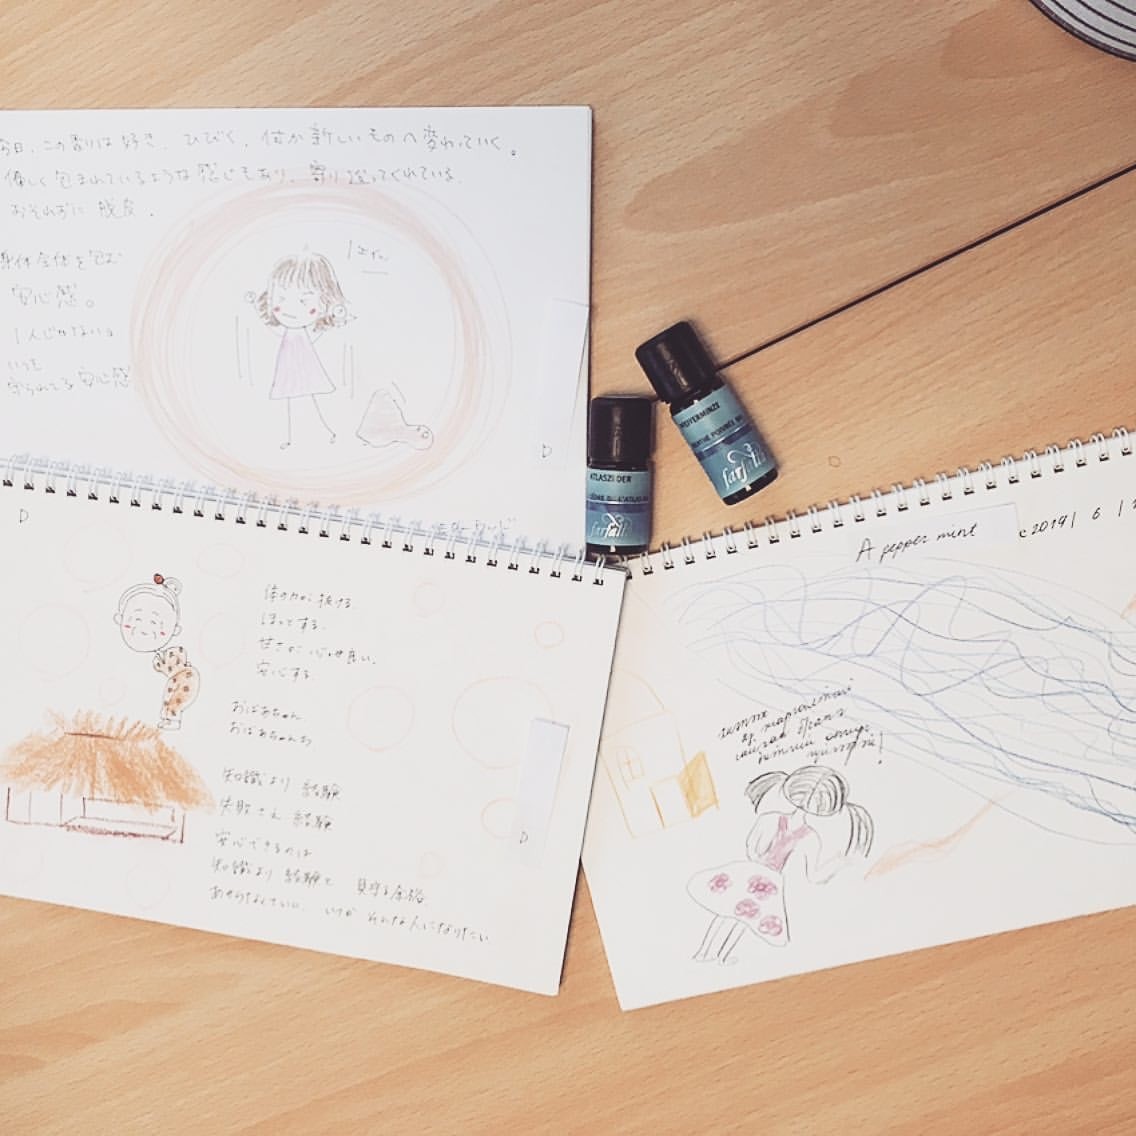 今日、この香りは好き、ひびく、何か新しいものへ変わっていく。
優しく包まれているような感じもあり、寄り添ってくれている。
おそれずに 脱皮.
身体全体を包む
安心感。
1人じゃない。
いつも
守られてる安心感
D
D
体の力が抜ける.
ほっとする.
甘さが 心地良い.
安心する
おばあちゃん
おばあちゃんち
知識より 経験
失敗さえ 経験
安心できるのは
知識より 経験と 見守る余裕
いつか そんな人になりたい
D
ATLASZEDER
farfalla
PFEFFERMINZE
MENTHE POIVRÉE
farfalla
A pepper mint
2019 | 6 |